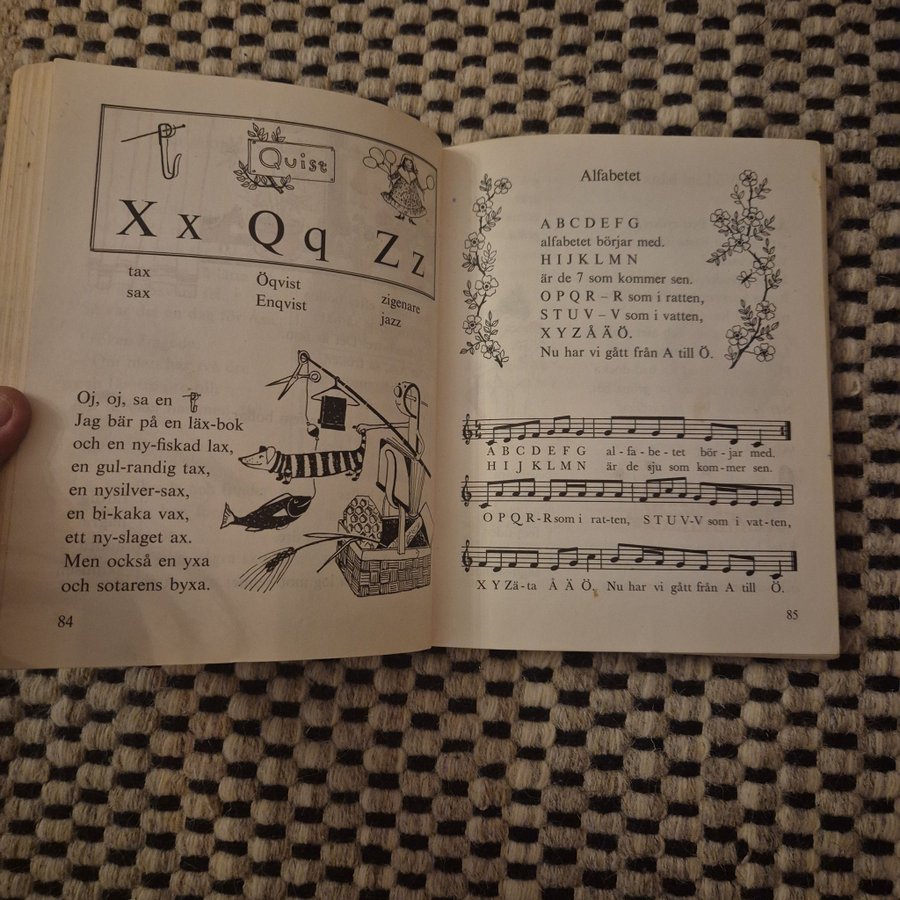 Quist
X x Q q Z z
tax
sax
Öqvist
Enqvist
zigenare
jazz
Oj, oj, sa en
Jag bär på en läx-bok
och en ny-fiskad lax,
en gul-randig tax,
en nysilver-sax,
en bi-kaka vax,
ett ny-slaget ax.
Men också en yxa
och sotarens byxa.
84
Alfabetet
A B C D E F G
alfabetet börjar med.
H I J K L M N
är de 7 som kommer sen.
O P Q R – R som i ratten,
S T U V – V som i vatten,
X Y Z Å Ä Ö.
Nu har vi gått från A till Ö.
A B C D E F G al - fa - be - tet bör - jar med.
H I J K L M N är de sju som kom-mer sen.
O P Q R-R som i rat-ten, S T U V-V som i vat-ten,
X Y Zä-ta Å Ä Ö, Nu har vi gått från A till Ö.
85